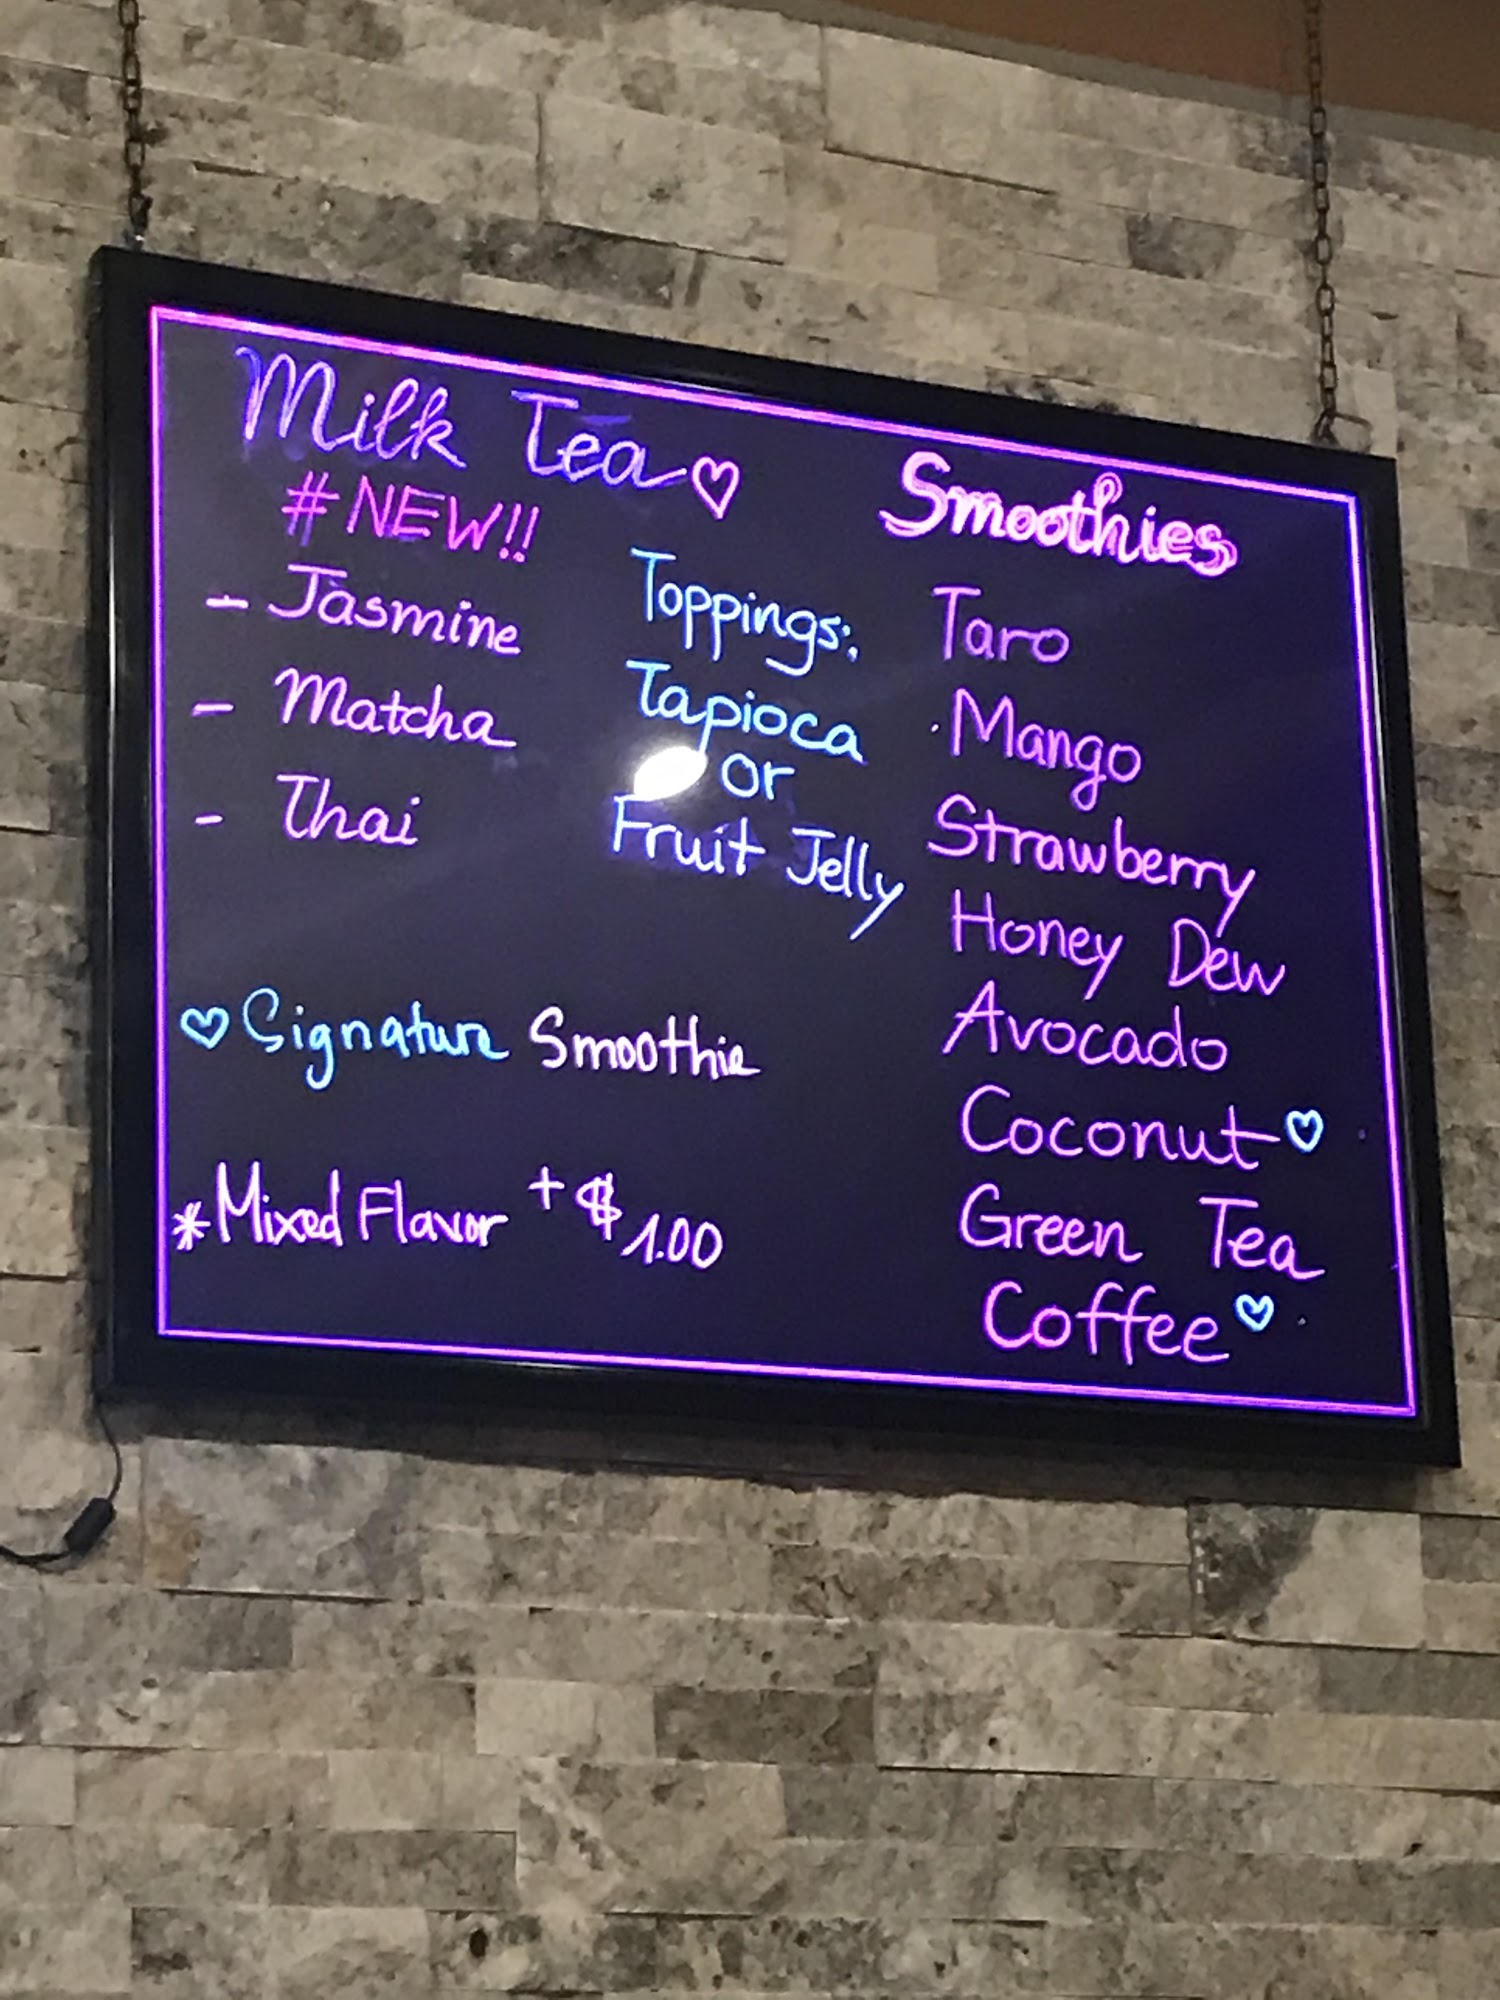 Milk Tea♡
#NEW!!
- Jasmine
- Matcha
- Thai
Toppings:
Tapioca
or
Fruit Jelly
♡ Signature Smoothie
*Mixed Flavor + $1.00
Smoothies
Taro
Mango
Strawberry
Honey Dew
Avocado
Coconut♡
Green Tea
Coffee♡